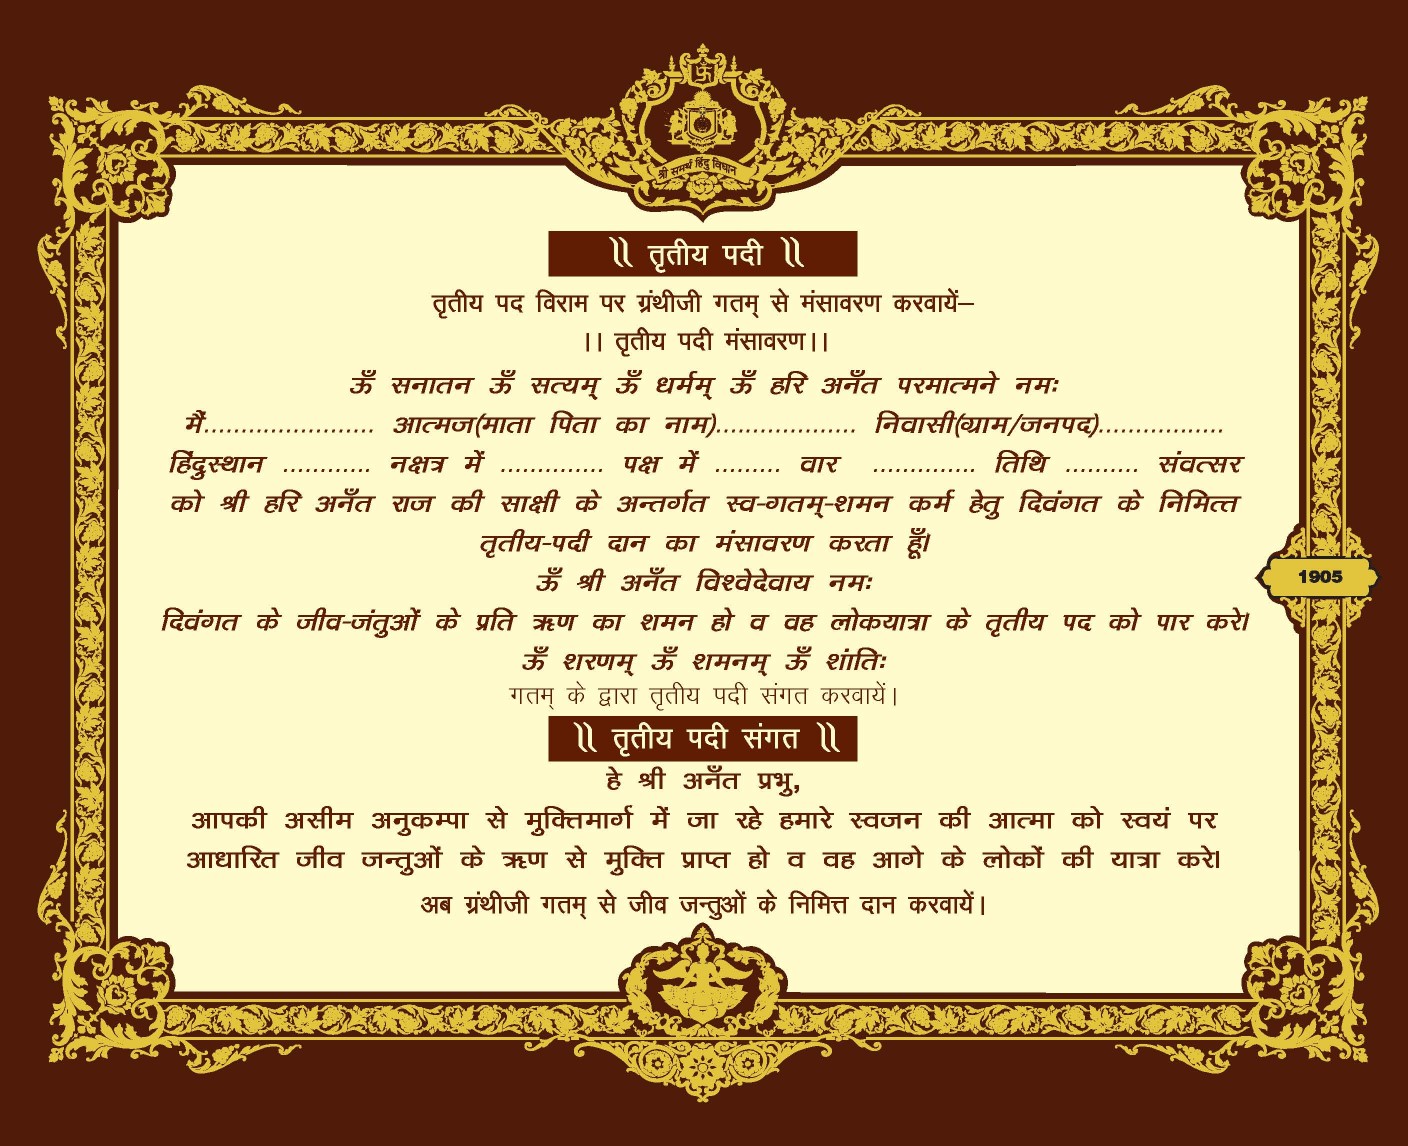 श्री समर्थ हिंदु विधान
॥ तृतीय पदी ॥
तृतीय पद विराम पर ग्रंथीजी गतम् से मंसावरण करवायें–
।। तृतीय पदी मंसावरण।।
ऊँ सनातन ऊँ सत्यम् ऊँ धर्मम् ऊँ हरि अनँत परमात्मने नमः
मैं....................... आत्मज(माता पिता का नाम)................... निवासी(ग्राम/जनपद).................
हिंदुस्थान ............ नक्षत्र में .............. पक्ष में ......... वार .............. तिथि .......... संवत्सर
को श्री हरि अनँत राज की साक्षी के अन्तर्गत स्व-गतम्-शमन कर्म हेतु दिवंगत के निमित्त
तृतीय-पदी दान का मंसावरण करता हूँ।
ऊँ श्री अनँत विश्वेदेवाय नमः
1905
दिवंगत के जीव-जंतुओं के प्रति ऋण का शमन हो व वह लोकयात्रा के तृतीय पद को पार करे।
ऊँ शरणम् ऊँ शमनम् ऊँ शांतिः
गतम् के द्वारा तृतीय पदी संगत करवायें।
॥ तृतीय पदी संगत ॥
हे श्री अनँत प्रभु,
आपकी असीम अनुकम्पा से मुक्तिमार्ग में जा रहे हमारे स्वजन की आत्मा को स्वयं पर
आधारित जीव जन्तुओं के ऋण से मुक्ति प्राप्त हो व वह आगे के लोकों की यात्रा करे।
अब ग्रंथीजी गतम् से जीव जन्तुओं के निमित्त दान करवायें।